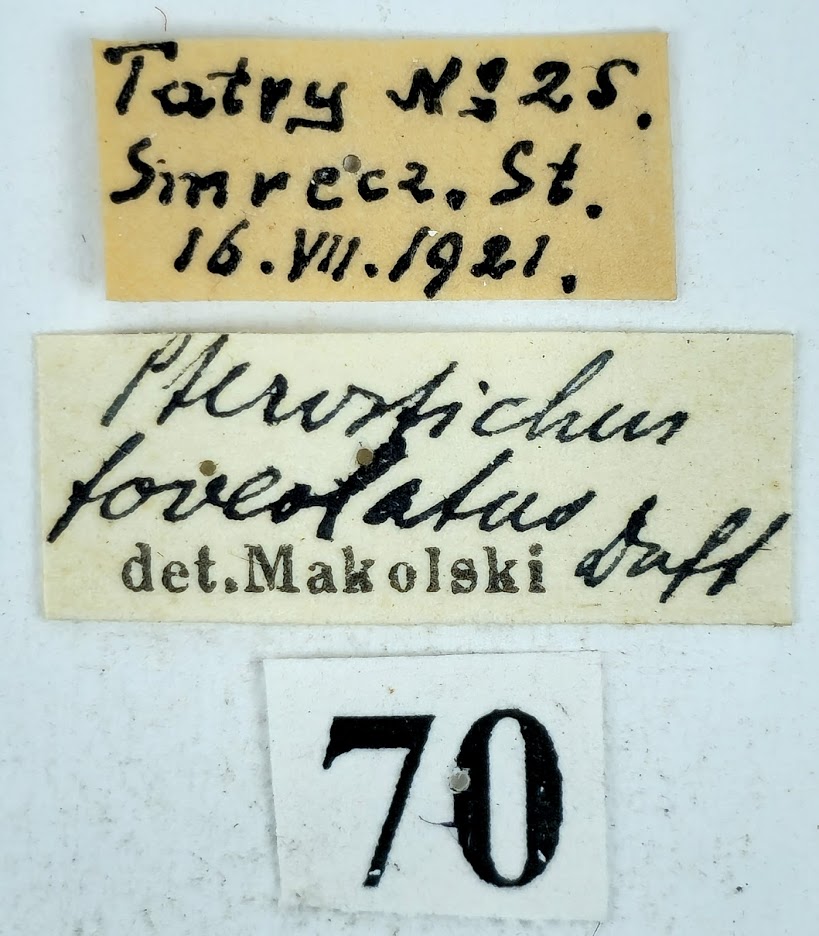 Tatry № 25.
Smrecz. St.
16.VII.1921.
Pterostichus
foveolatus Duft
det.Makolski
70